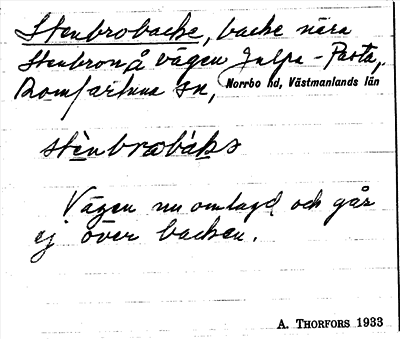 Stenbrobacke, backe nära
Stenbron å vägen Julpa - Pasta,
Romfartuna sn, Norrbo hd, Västmanlands län
stènbrobàks
Vägen nu omlagd och går
ej över backen.
A. THORFORS 1933